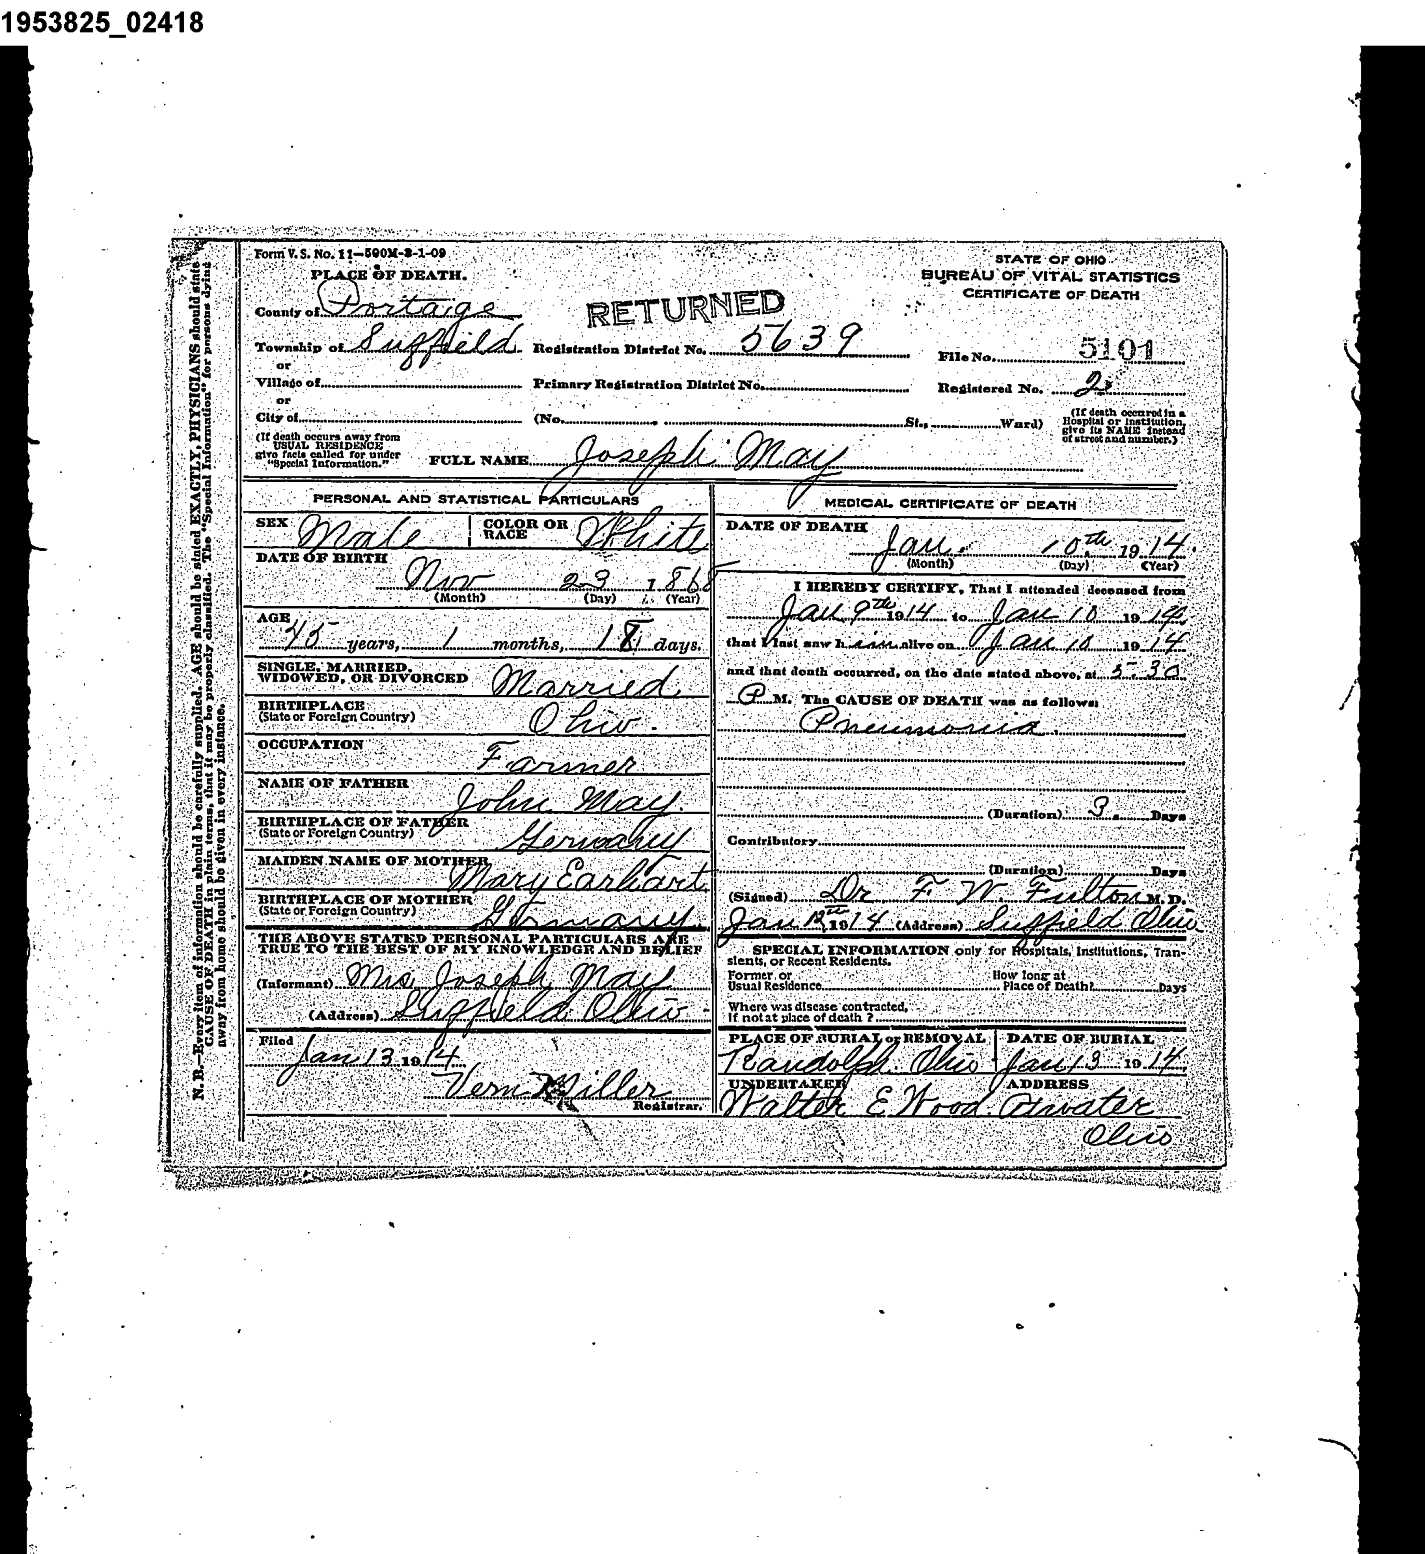 1953825_02418
Form V. S. No. 11—500M-3-1-09
PLACE OF DEATH.
County of Portage
Township of Suffield
or
Village of
or
City of
(If death occurs away from
USUAL RESIDENCE
give facts called for under
"Special Information.")
RETURNED
Registration District No. 5639
Primary Registration District No.
(No. St., Ward)
STATE OF OHIO
BUREAU OF VITAL STATISTICS
CERTIFICATE OF DEATH
File No. 5101
Registered No. 2
(If death occurred in a
Hospital or Institution,
give its NAME instead
of street and number.)
FULL NAME Joseph May
PERSONAL AND STATISTICAL PARTICULARS
SEX Male
COLOR OR RACE White
DATE OF BIRTH
Nov 23 1868
(Month) (Day) (Year)
AGE
45 years, 1 months, 18 days.
SINGLE, MARRIED,
WIDOWED, OR DIVORCED Married
BIRTHPLACE
(State or Foreign Country) Ohio.
OCCUPATION
Farmer
NAME OF FATHER
John May.
BIRTHPLACE OF FATHER
(State or Foreign Country) Germany
MAIDEN NAME OF MOTHER
Mary Earhart
BIRTHPLACE OF MOTHER
(State or Foreign Country) Germany
THE ABOVE STATED PERSONAL PARTICULARS ARE
TRUE TO THE BEST OF MY KNOWLEDGE AND BELIEF
(Informant) Mrs Joseph May
(Address) Suffield Ohio
Filed
Jan 13 1914
Vern Miller
Registrar.
MEDICAL CERTIFICATE OF DEATH
DATE OF DEATH
Jan. 10th 1914.
(Month) (Day) (Year)
I HEREBY CERTIFY, That I attended deceased from
Jan 9th 1914 to Jan 10 19
that I last saw him alive on Jan 10 1914
and that death occurred, on the date stated above, at 5.30
P M. The CAUSE OF DEATH was as follows:
Pneumonia.
(Duration) 3. Days
Contributory
(Duration) Days
(Signed) Dr F W Fulton M. D.
Jan 12th 1914 (Address) Suffield Ohio
SPECIAL INFORMATION only for Hospitals, Institutions, Tran-
sients, or Recent Residents.
Former or
Usual Residence
How long at
Place of Death? Days
Where was disease contracted,
If not at place of death ?
PLACE OF BURIAL or REMOVAL
Randolph Ohio
DATE OF BURIAL
Jan 13 1914
UNDERTAKER
Walter E Wood
ADDRESS
Atwater
Ohio
N. B.—Every item of information should be carefully supplied. AGE should be stated EXACTLY, PHYSICIANS should state
CAUSE OF DEATH in plain terms, that it may be properly classified. The "Special Information" for persons dying
away from home should be given in every instance.